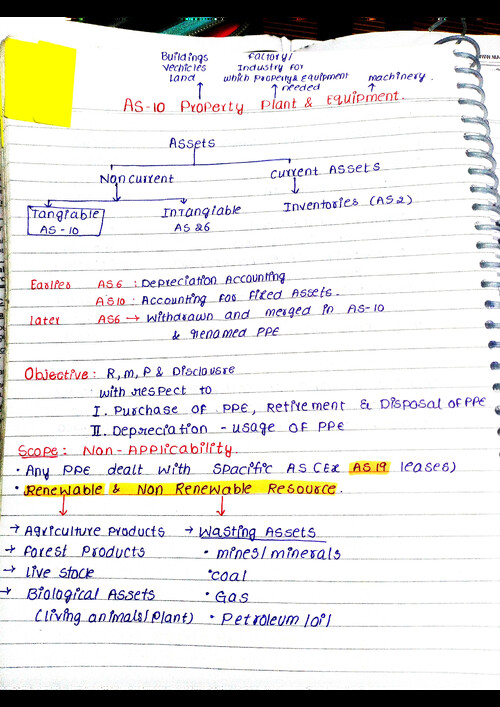 Buildings Factory/
Vechicles Industry For
Land which Property & Equipment machinery.
needed
AS-10 Property Plant & Equipment.
Assets
Noncurrent Current Assets
Tangiable Intangiable Inventories (AS2)
AS-10 AS 26
Earlier AS6 : Depreciation Accounting
AS10 : Accounting for Fixed Assets.
Later AS6 → Withdrawn and merged in AS-10
& renamed PPE
Objective : R, m, P & Disclousre
with respect to
I. Purchase of PPE, Retirement & Disposal of PPE
II. Depreciation - usage of PPE
Scope : Non-Applicability.
• Any PPE dealt with Spacific AS (Ex AS 19 leases)
• Renewable & Non Renewable Resource.
→ Agriculture Products → Wasting Assets
→ Forest Products • mines/minerals
→ Live stock • coal
→ Biological Assets • Gas
(living animals/Plant) • Petroleum/oil